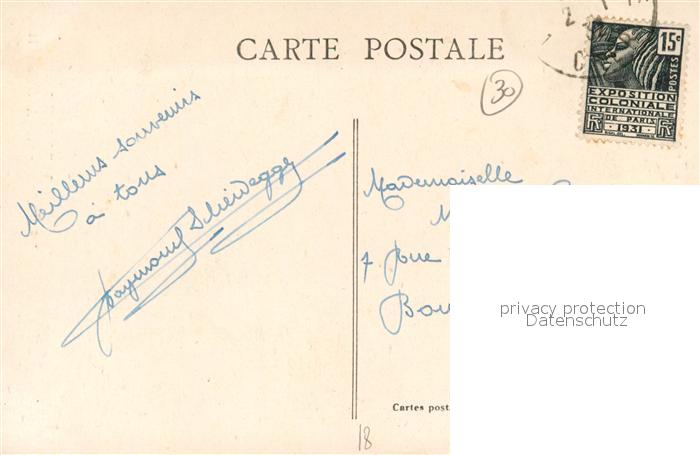 CARTE POSTALE
15c
POSTES
EXPOSITION
COLONIALE
INTERNATIONALE
DE PARIS
1931
30
Meilleurs souvenirs
à tous
Raymond
Mademoiselle
M
7
Cartes post
18
privacy protection
Datenschutz